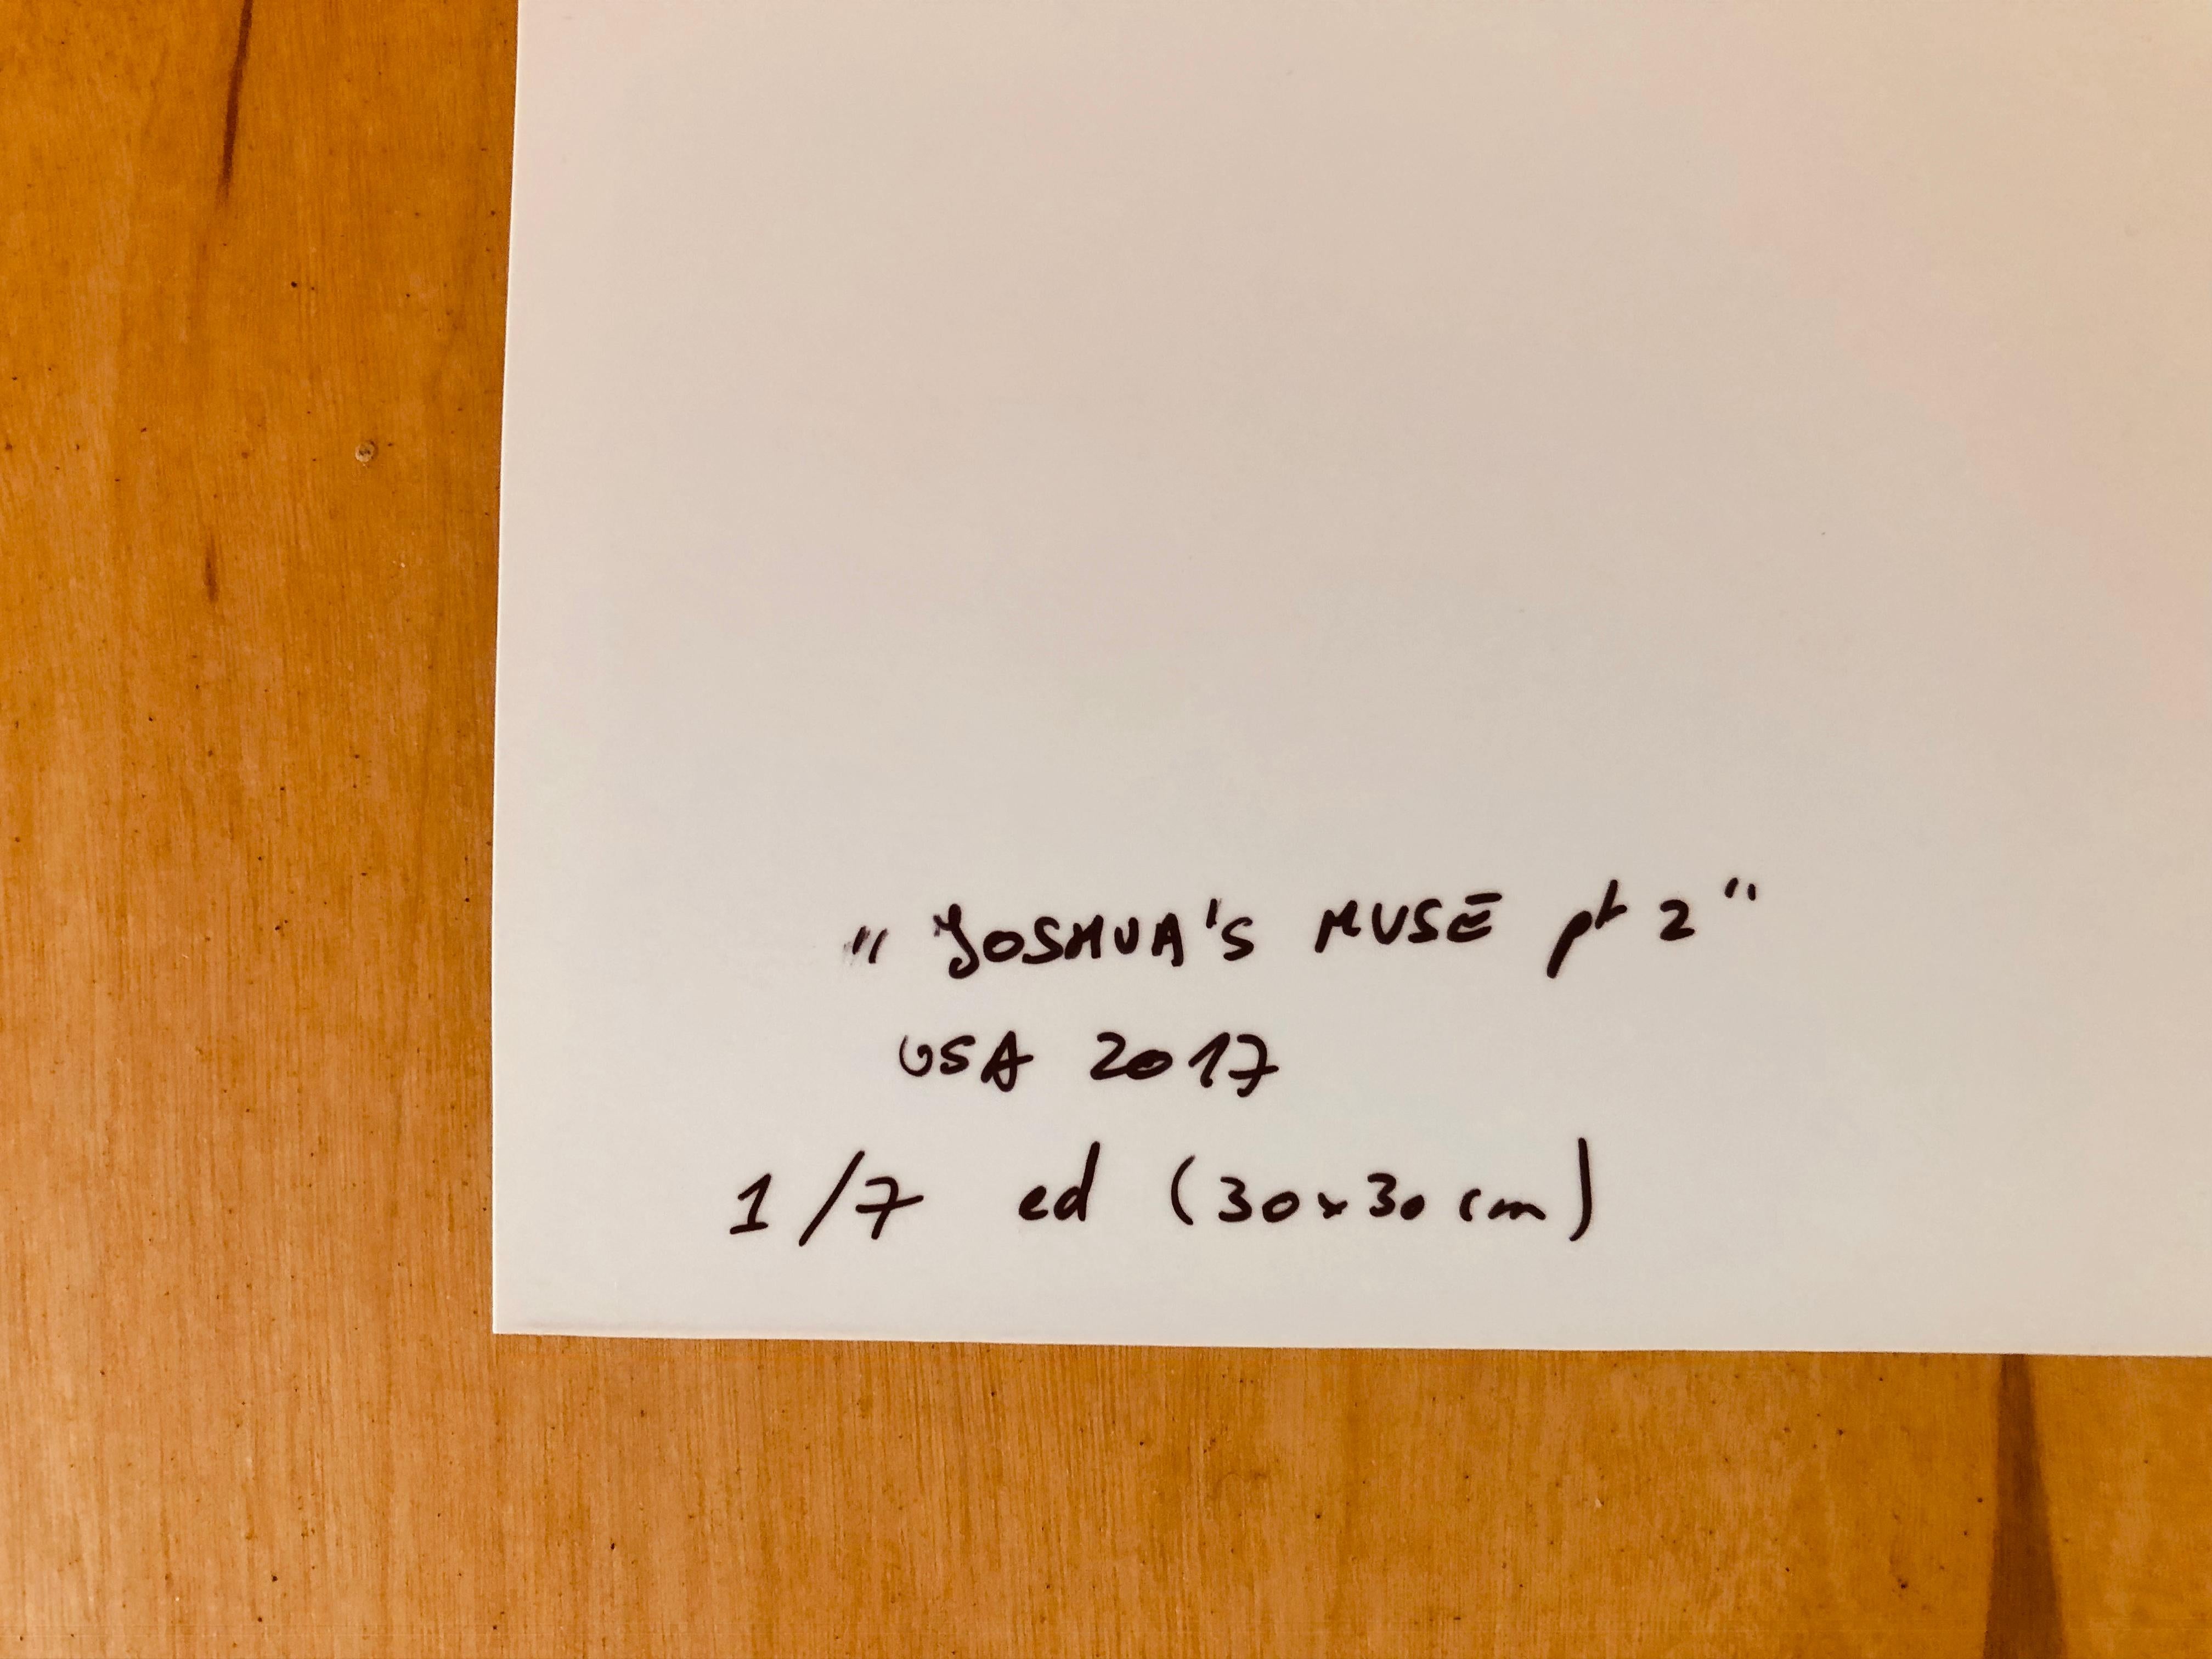 "JOSHUA'S MUSE pt 2"
USA 2017
1/7 ed (30x30 cm)